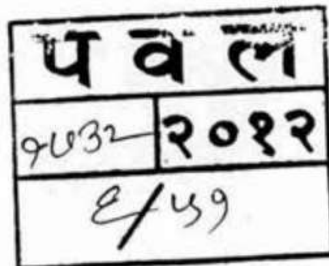 प व ल
१७३२ २०१२
६/५१